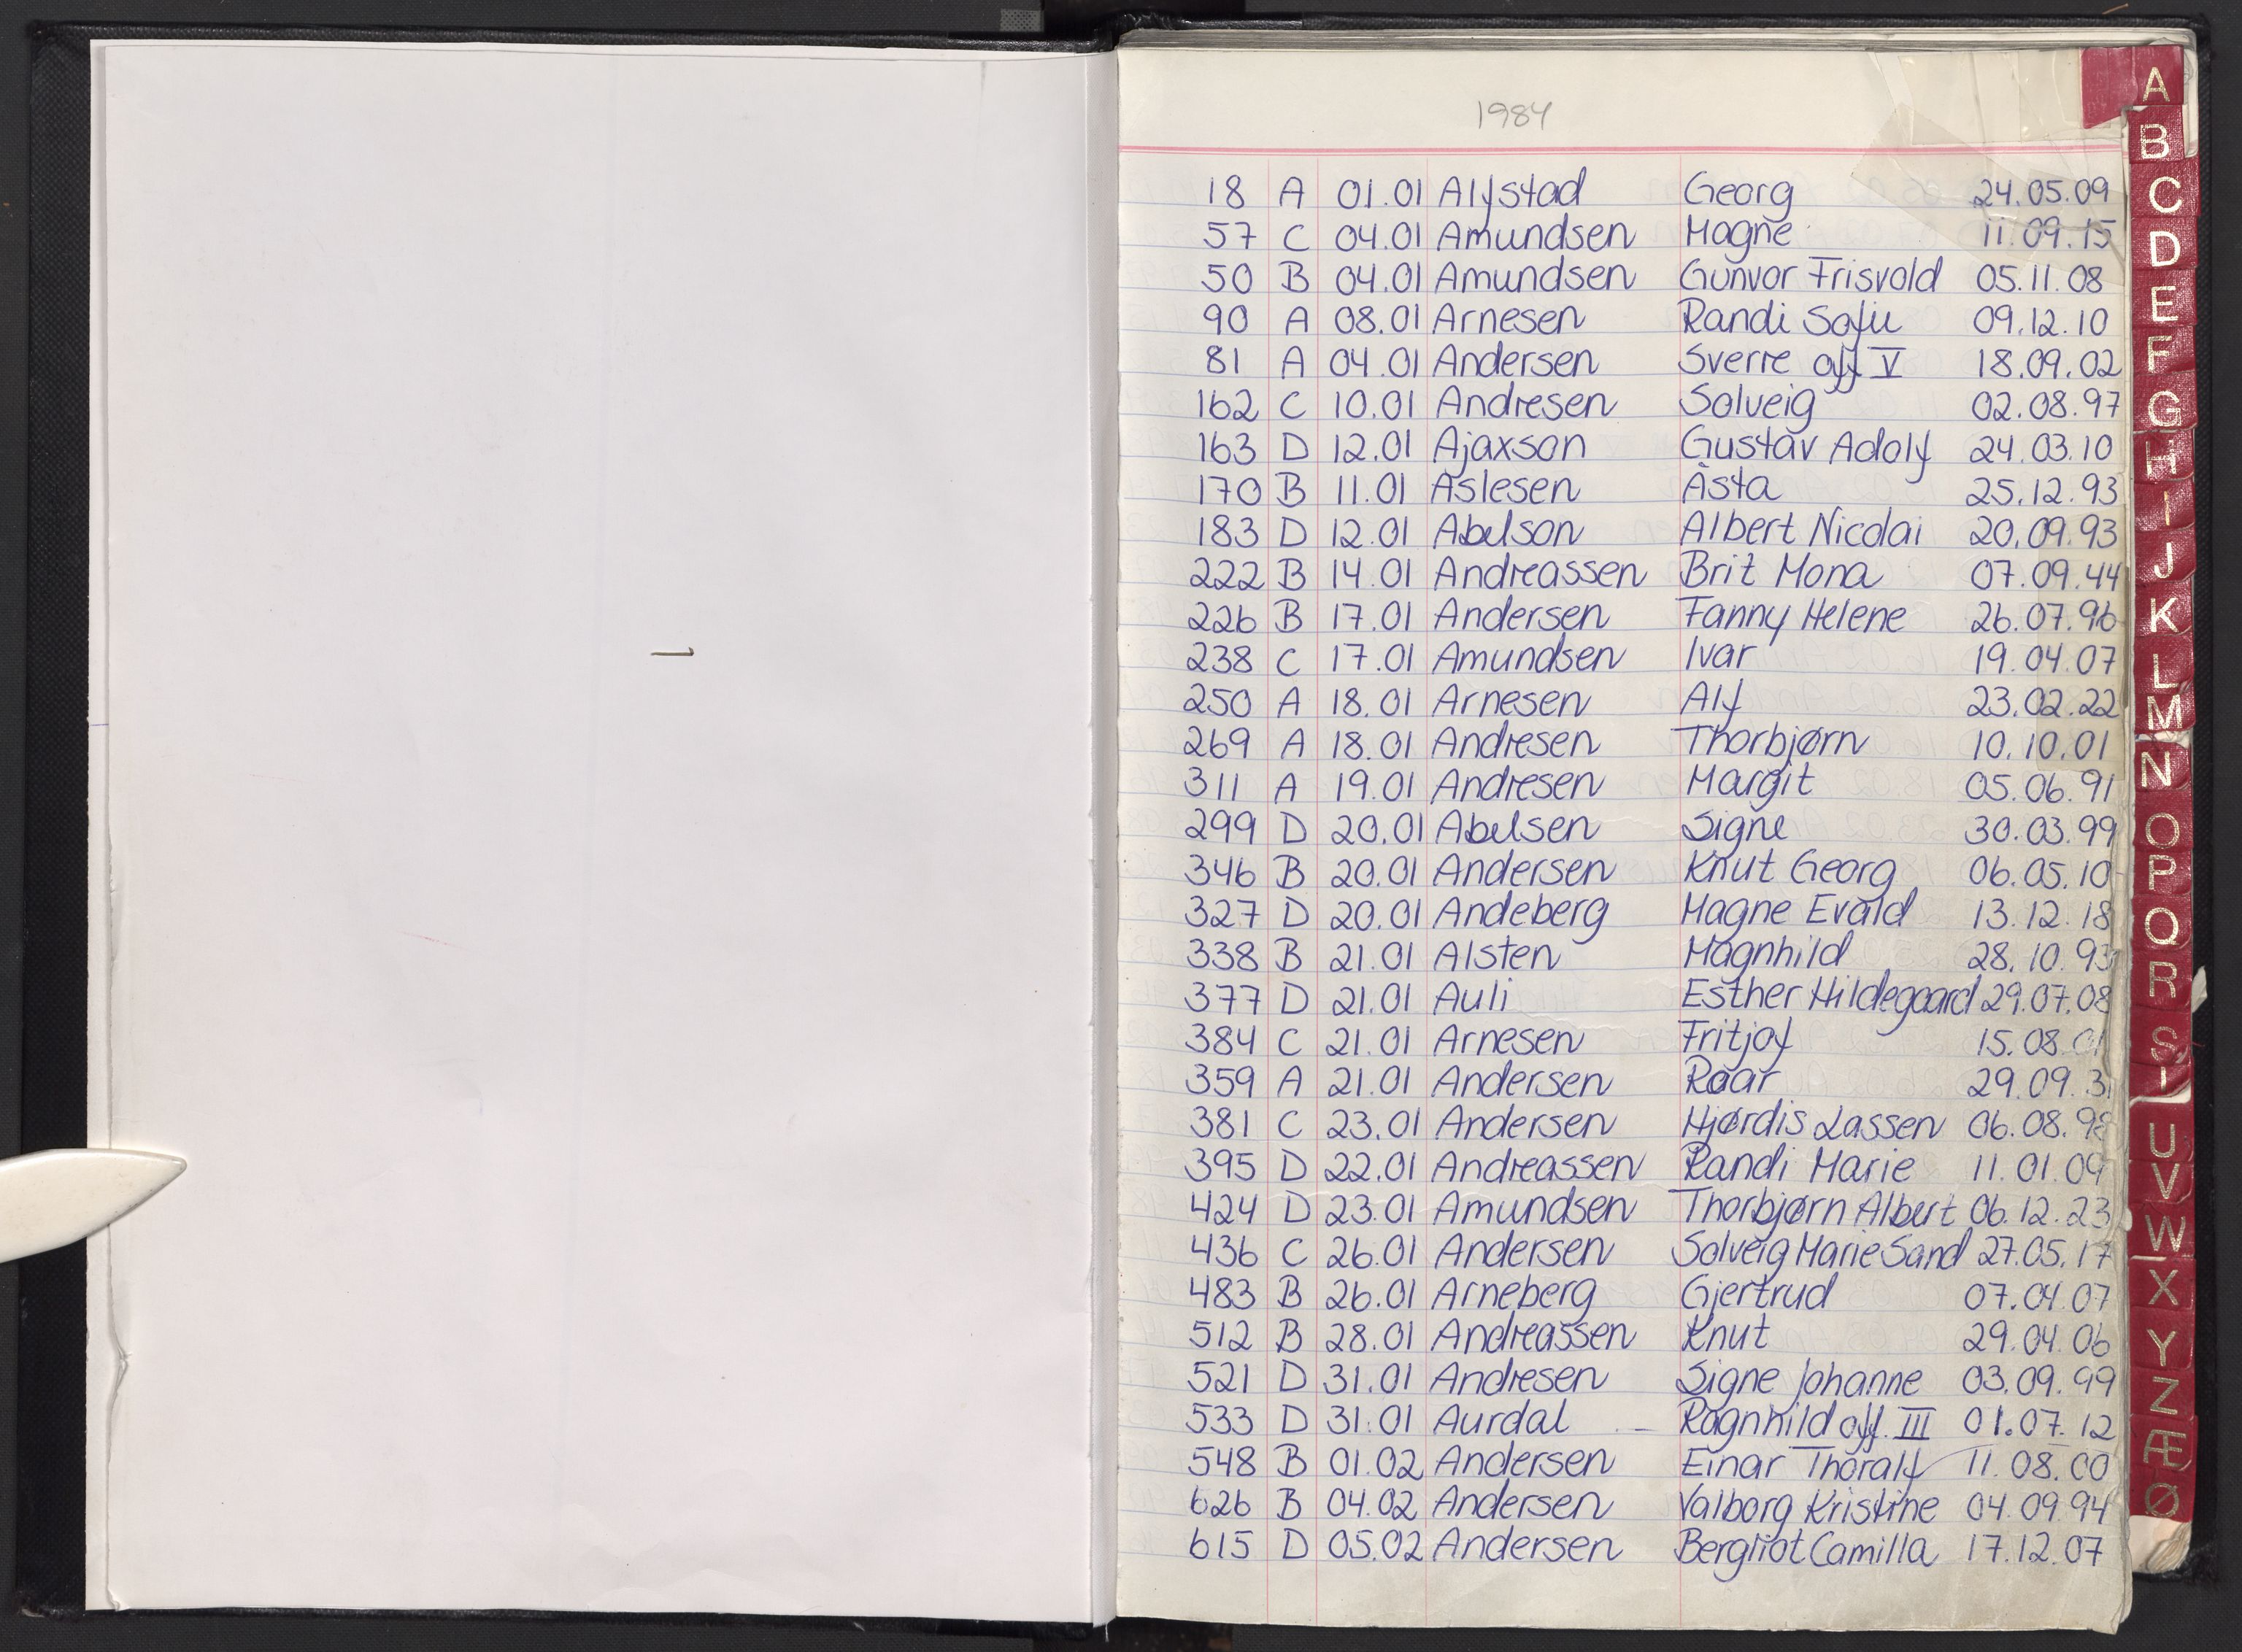 1984
18 A 01.01 Alfstad Georg 24.05.09
57 C 04.01 Amundsen Magne 11.09.15
50 B 04.01 Amundsen Gunvor Frisvold 05.11.08
90 A 08.01 Arnesen Randi Sofie 09.12.10
81 A 04.01 Andersen Sverre aff V 18.09.02
162 C 10.01 Andresen Solveig 02.08.97
163 D 12.01 Ajaxson Gustav Adolf 24.03.10
170 B 11.01 Åslesen Åsta 25.12.93
183 D 12.01 Abelson Albert Nicolai 20.09.93
222 B 14.01 Andreassen Brit Mona 07.09.44
226 B 17.01 Andersen Fanny Helene 26.07.96
238 C 17.01 Amundsen Ivar 19.04.07
250 A 18.01 Arnesen Alf 23.02.22
269 A 18.01 Andresen Thorbjørn 10.10.01
311 A 19.01 Andresen Margit 05.06.91
299 D 20.01 Abelsen Signe 30.03.99
346 B 20.01 Andersen Knut Georg 06.05.10
327 D 20.01 Andeberg Magne Evald 13.12.18
338 B 21.01 Alsten Magnhild 28.10.93
377 D 21.01 Auli Esther Hildegaard 29.07.08
384 C 21.01 Arnesen Fritjof 15.08.01
359 A 21.01 Andersen Roar 29.09.31
381 C 23.01 Andersen Hjørdis Lassen 06.08.98
395 D 22.01 Andreassen Randi Marie 11.01.09
424 D 23.01 Amundsen Thorbjørn Albert 06.12.23
436 C 26.01 Andersen Solveig Marie Sand 27.05.17
483 B 26.01 Arneberg Gjertrud 07.04.07
512 B 28.01 Andreassen Knut 29.04.06
521 D 31.01 Andresen Signe Johanne 03.09.99
533 D 31.01 Aurdal Ragnhild aff. III 01.07.12
548 B 01.02 Andersen Einar Thoralf 11.08.00
626 B 04.02 Andersen Valborg Kristine 04.09.94
615 D 05.02 Andersen Bergliot Camilla 17.12.07
A
B
C
D
E
F
G
H
I
J
K
L
M
N
O
P
Q
R
S
U
V
W
X
Y
Z
Æ
Ø